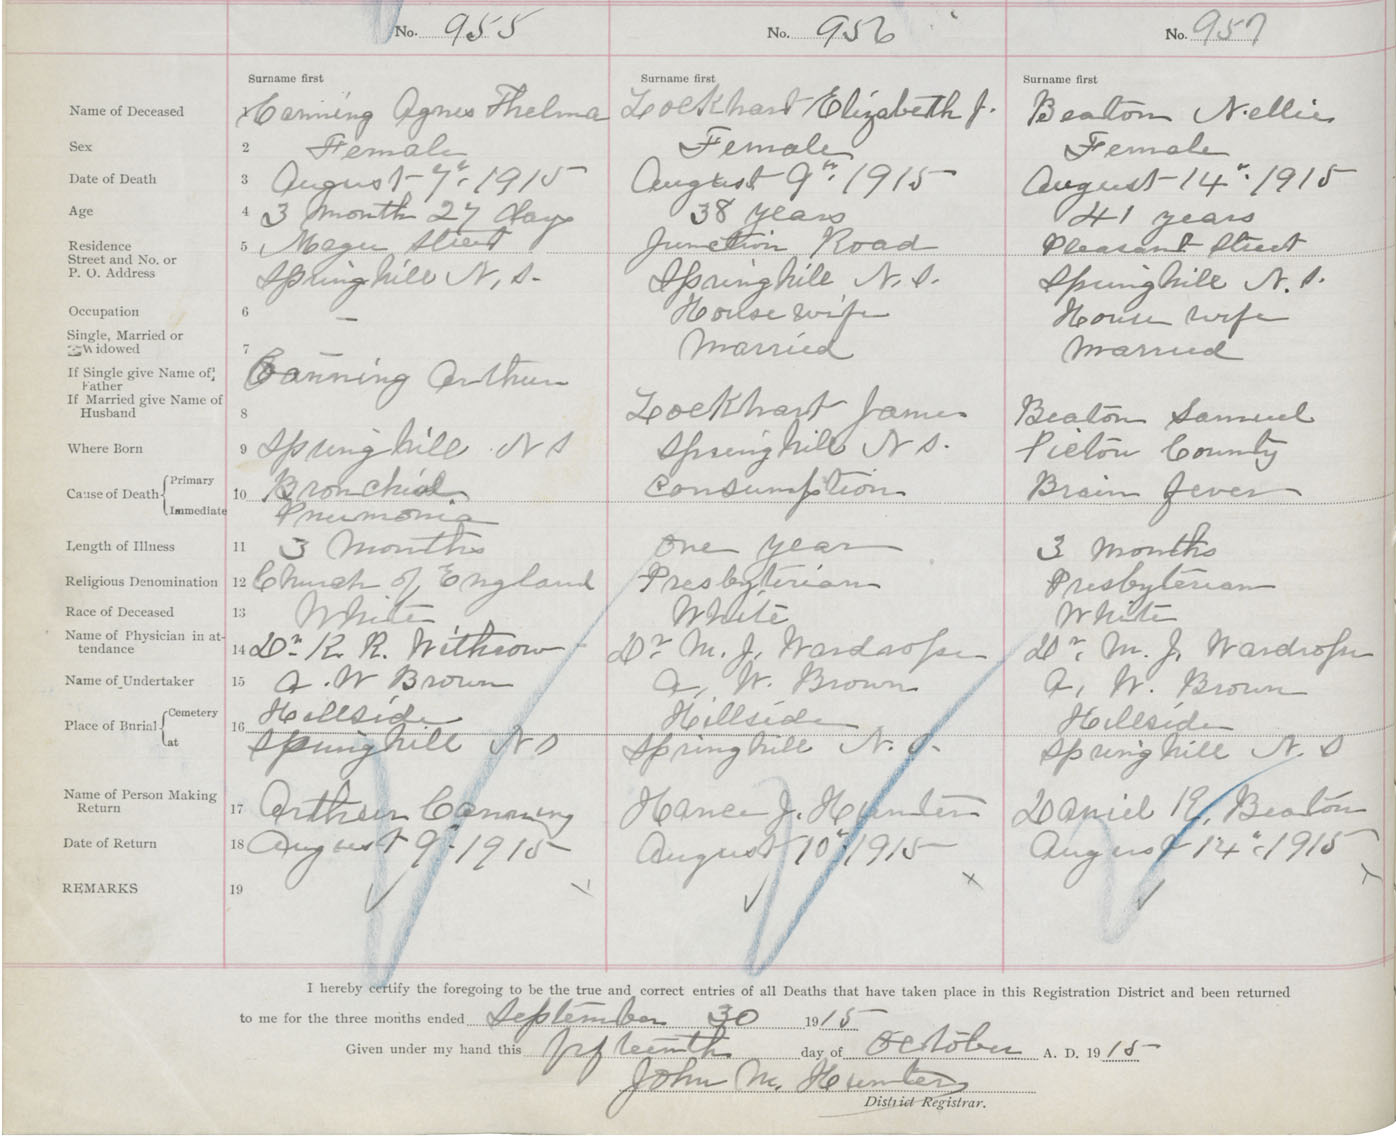 No. 955 No. 956 No. 957
Surname first Surname first Surname first
Name of Deceased 1 Canning Agnes Thelma Lockhart Elizabeth J. Beaton Nellie
Sex 2 Female Female Female
Date of Death 3 August 7th 1915 August 9th 1915 August 14th 1915
Age 4 3 month 27 days 38 years 41 years
Residence 5 Street Junction Road Pleasant Street
Street and No. or
P. O. Address Springhill N. S. Springhill N. S. Springhill N. S.
Occupation 6 — House wife House wife
Single, Married or
Widowed 7 — Married Married
If Single give Name of Father Canning Arthur
If Married give Name of Husband 8 Lockhart James Beaton Samuel
Where Born 9 Springhill N S Springhill N S. Pictou County
Cause of Death Primary 10 Bronchial Consumption Brain fever
Immediate Pneumonia
Length of Illness 11 3 Months One year 3 Months
Religious Denomination 12 Church of England Presbyterian Presbyterian
Race of Deceased 13 White White White
Name of Physician in at-
tendance 14 Dr. R. R. Withrow Dr. M. J. Wardrope Dr. M. J. Wardrope
Name of Undertaker 15 A. W Brown A. W. Brown A. W. Brown
Place of Burial Cemetery 16 Hillside Hillside Hillside
at Springhill N S Springhill N. S. Springhill N. S
Name of Person Making
Return 17 Arthur Canning Hance J. Hunter Daniel R. Beaton
Date of Return 18 August 9th 1915 August 10th 1915 August 14th 1915
REMARKS 19
I hereby certify the foregoing to be the true and correct entries of all Deaths that have taken place in this Registration District and been returned
to me for the three months ended September 30 1915
Given under my hand this fifteenth day of October A. D. 1915
John M. Hunter
District Registrar.